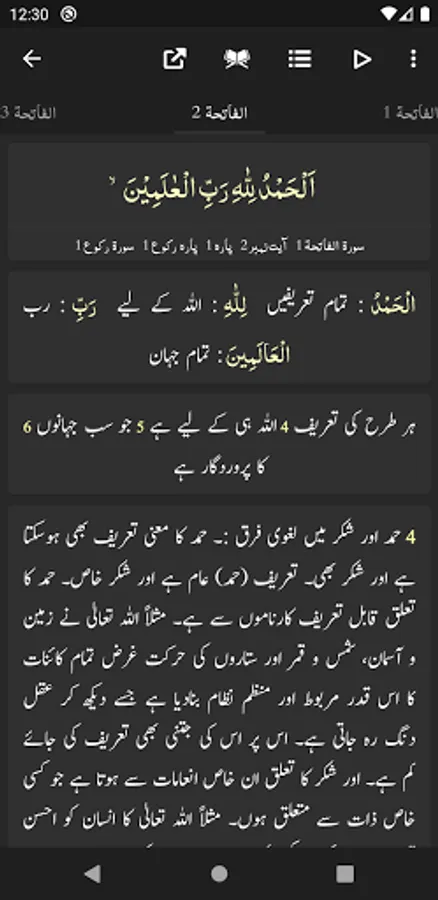 12:30
الفاتحة 1
الفاتحة 2
الفاتحة 3
اَلْحَمْدُ لِلّٰهِ رَبِّ الْعٰلَمِيْنَ ۙ
سورة الفاتحة 1 آیت نمبر 2 پارہ 1 پارہ رکوع 1 سورۃ رکوع 1
الْحَمْدُ : تمام تعریفیں لِلّٰهِ : اللہ کے لیے رَبِّ : رب
الْعَالَمِينَ : تمام جہان
ہر طرح کی تعریف 4 اللہ ہی کے لیے ہے 5 جو سب جہانوں 6
کا پروردگار ہے
4 حمد اور شکر میں لغوی فرق :۔ حمد کا معنی تعریف بھی ہوسکتا
ہے اور شکر بھی۔ تعریف (حمد) عام ہے اور شکر خاص۔ حمد کا
تعلق قابل تعریف کارناموں سے ہے۔ مثلاً اللہ تعالٰی نے زمین
و آسمان، شمس و قمر اور ستاروں کی حرکت غرض تمام کائنات
کا اس قدر مربوط اور منظم نظام بنادیا ہے جسے دیکھ کر عقل
دنگ رہ جاتی ہے۔ اس پر اس کی جتنی بھی تعریف کی جائے
کم ہے۔ اور شکر کا تعلق ان خاص انعامات سے ہوتا ہے جو کسی
خاص ذات سے متعلق ہوں۔ مثلاً اللہ تعالٰی کا انسان کو احسن